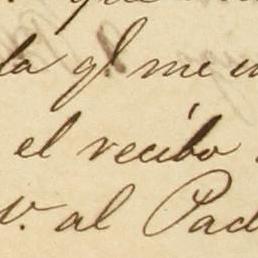 la q.l me
el recibo
V. al Pad